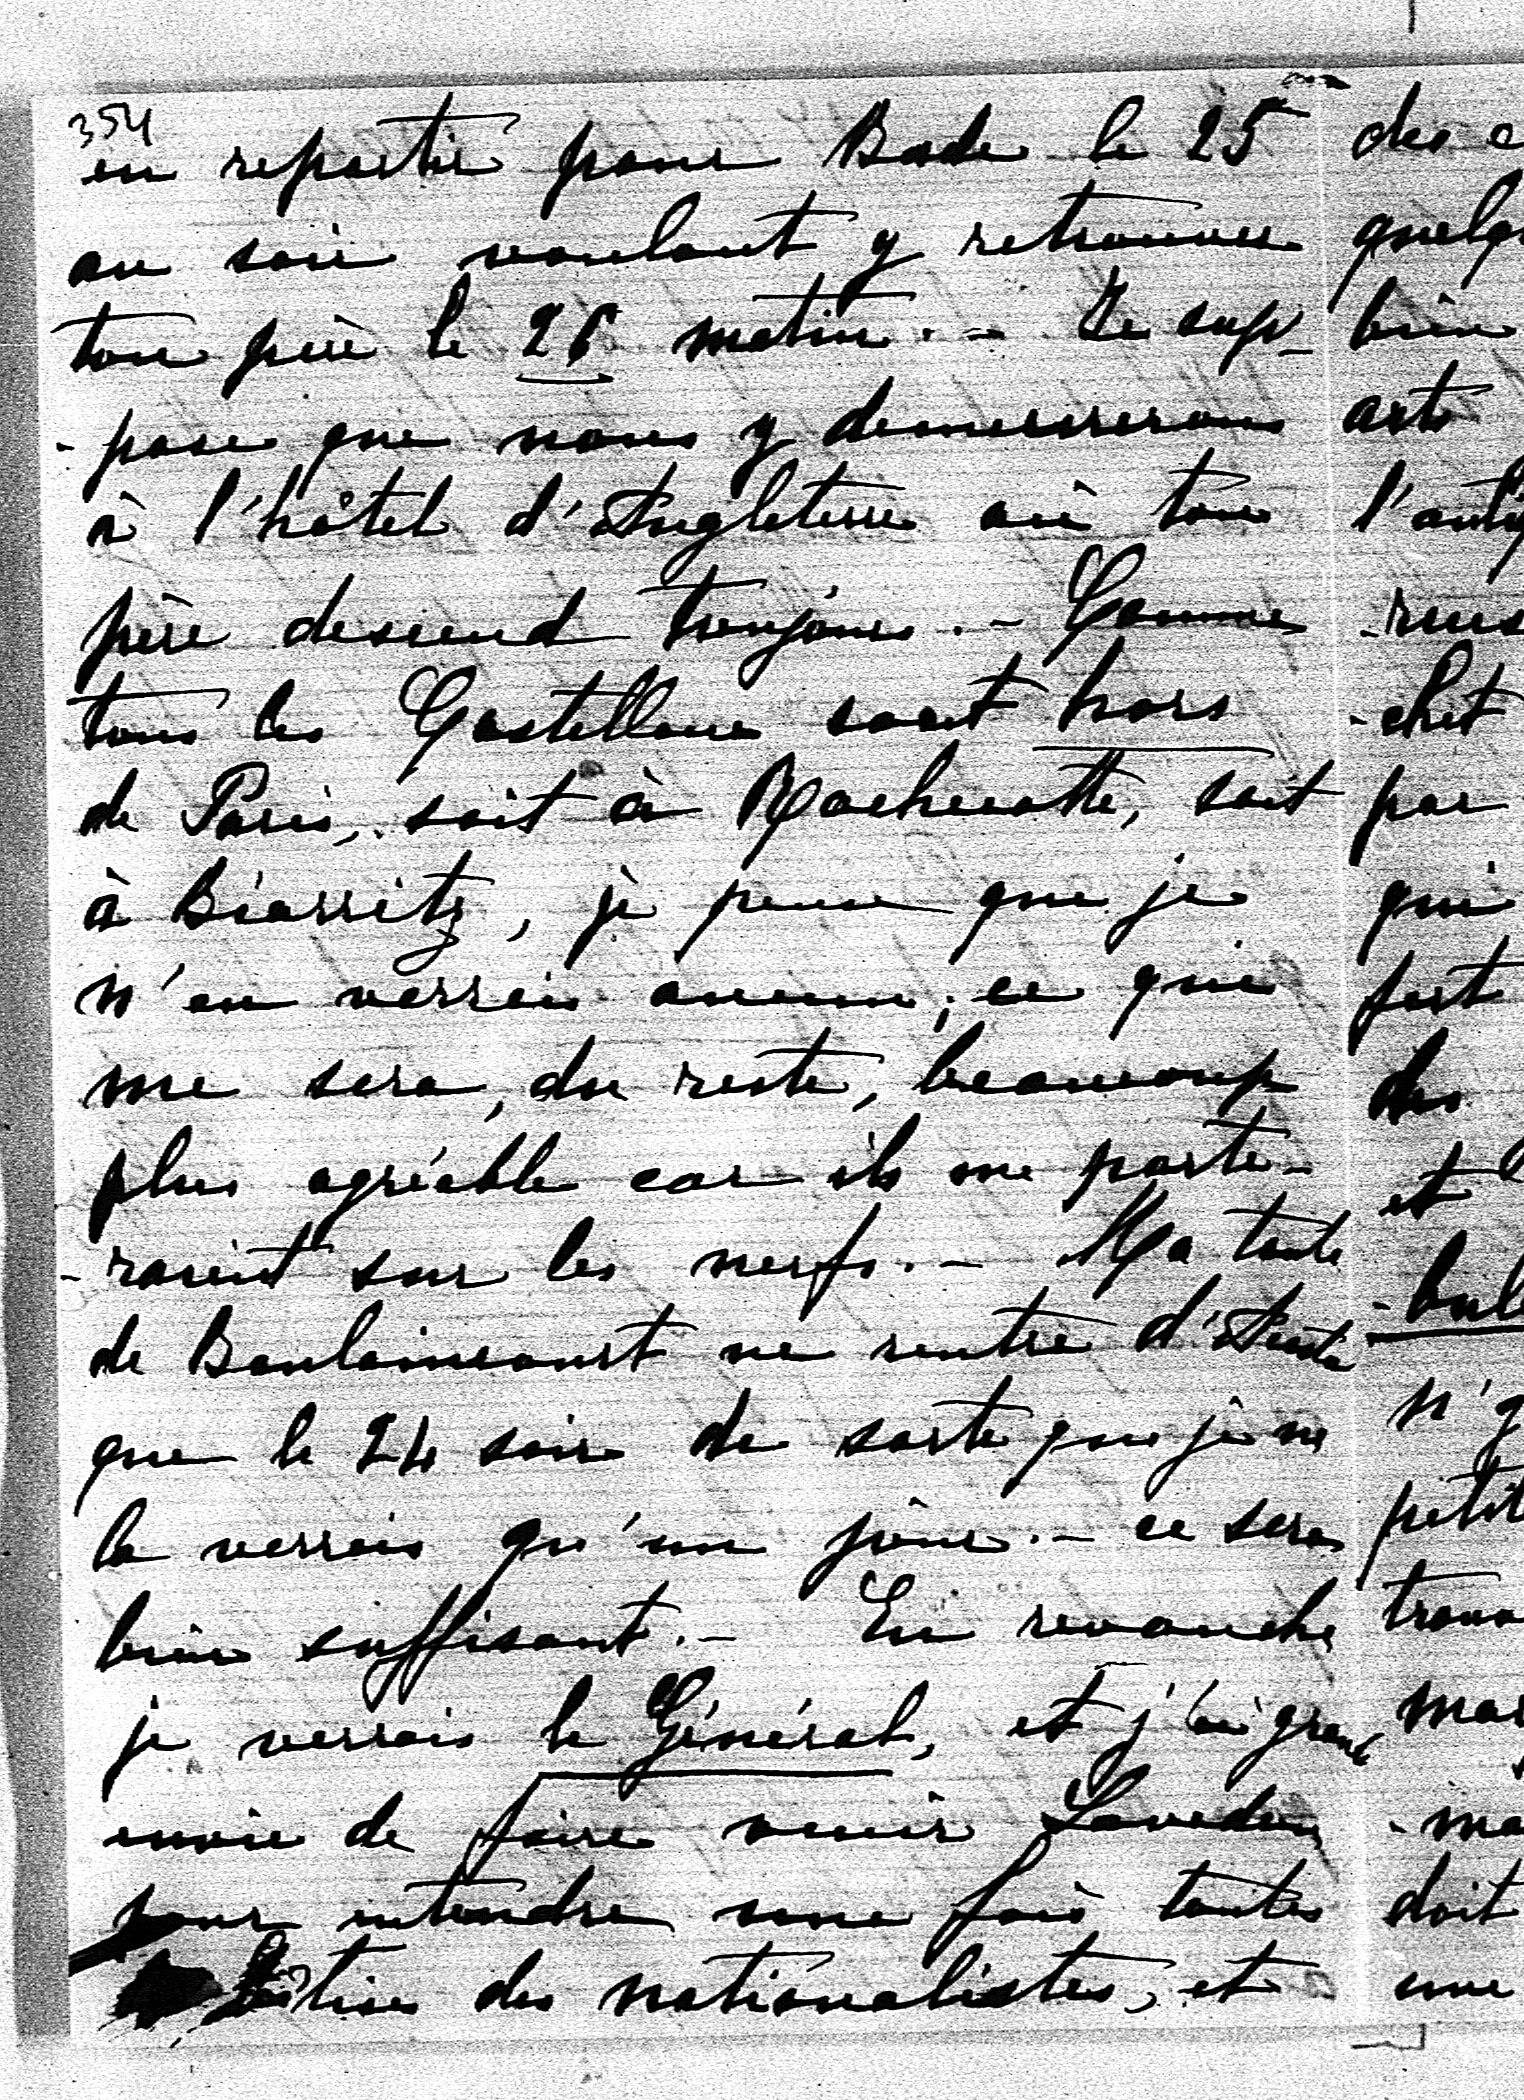 354
en repartir pour Bade le 25
au soir voulant y retrouver
ton père le 26 matin. - Je sup-
-pose que nous y demeurerons
à l'hôtel d'Angleterre où ton
père descend toujours. - Comme
tous les Castellane sont hors
de Paris, soit à Rochecotte, soit
à Biarritz, je pense que je
n'en verrai aucun, ce qui
me sera, du reste, beaucoup
plus agréable car ils me porte-
-raient sur les nerfs. - Ma tante
de Beaulaincourt ne rentre
que le 24 soir de sorte que je ne
la verrai qu'un jour. - ce sera
bien suffisant. - En revanche
je verrai le Général, et j'ai grande
envie de faire venir
pour entendre une fois toutes
les bêtises des nationalistes, et
des
bien
arts
-chet
par
qui
fort
des
et
doit
une